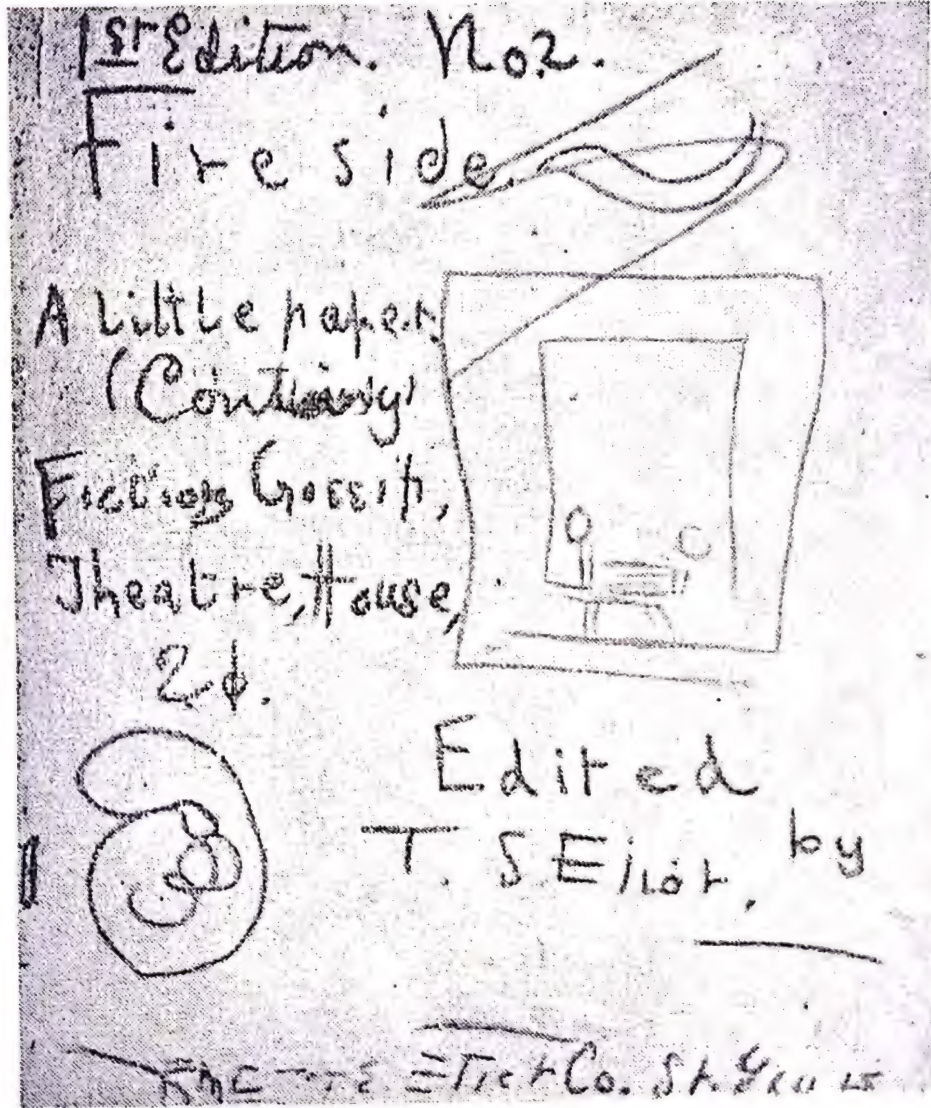 1st Edition. No 2.
Fireside.
A Little paper
(Containing)
Fiction, Gossip,
Theatre, House,
2¢.
Edited
by
T. S Eliot.
The T.S. Eliot Co. St. Louis